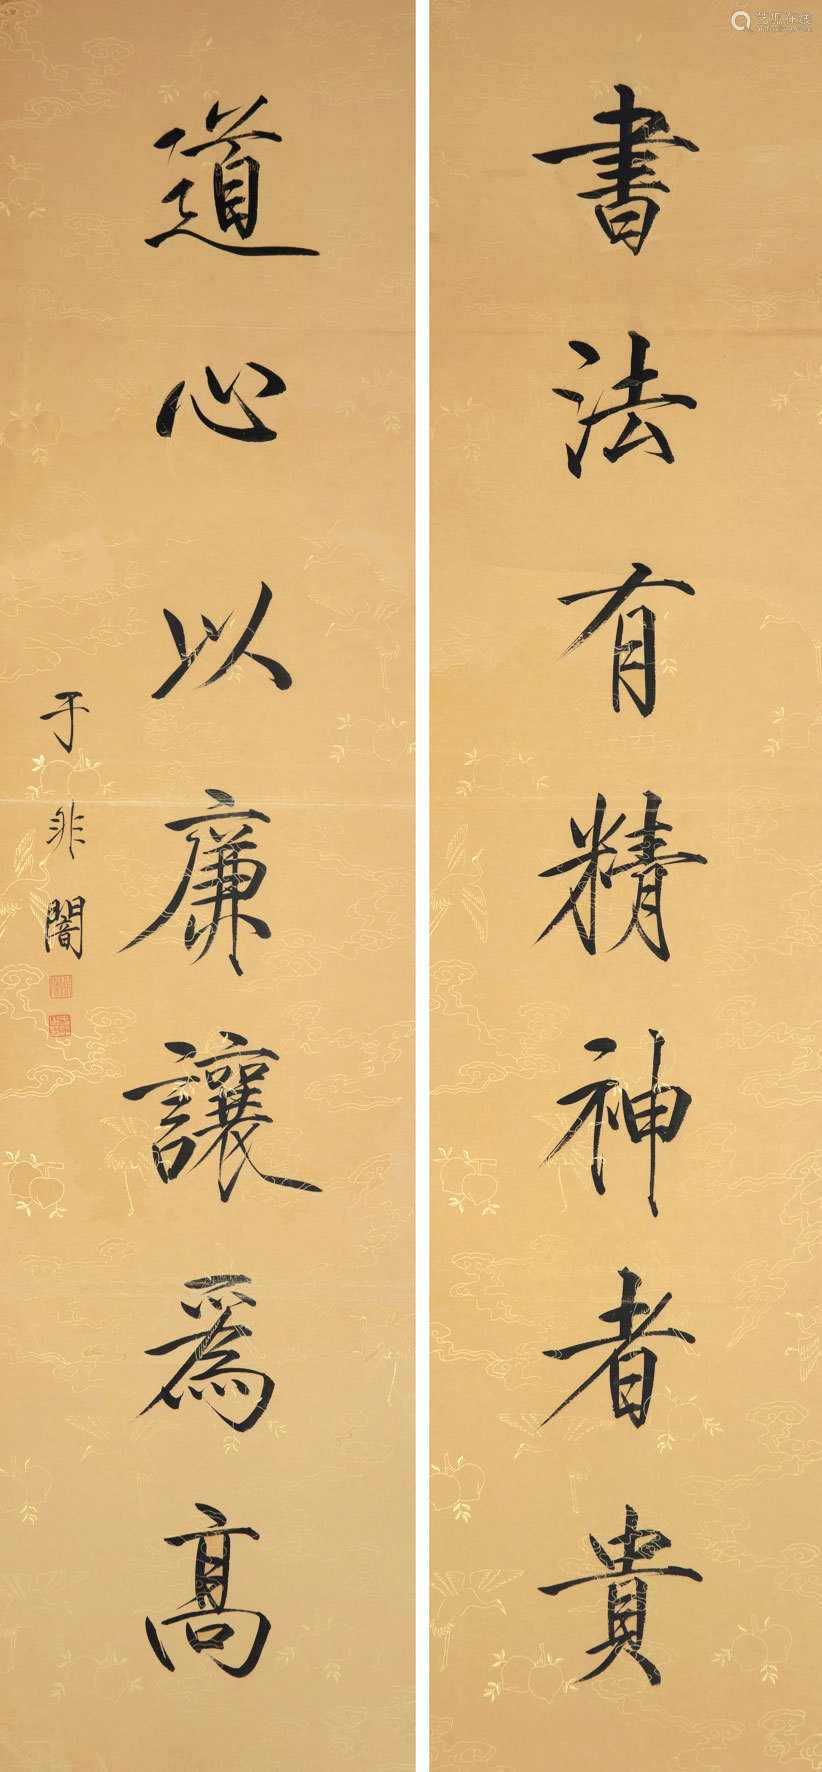 書法有精神者貴
道心以廉讓為高
于非闇
艺狐在线
artfoxlive.com